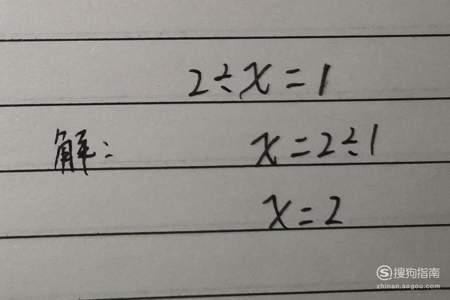 2÷x=1
解: x=2÷1
x=2
S搜狗指南
zhinan.sogou.com